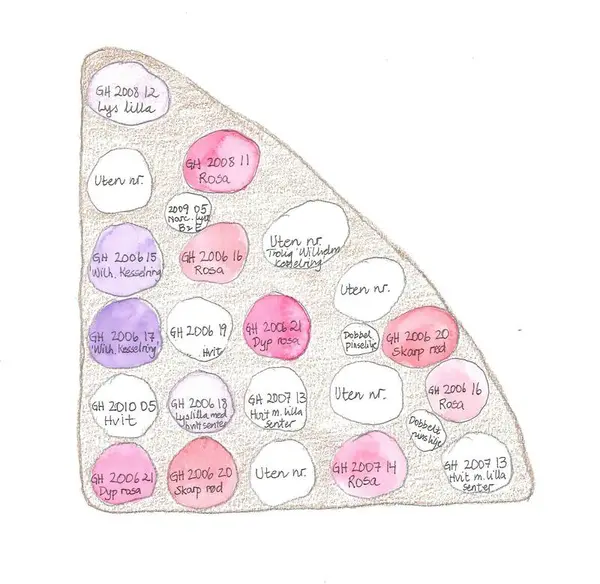 GH 2008 12
Lys lilla
GH 2008 11
Rosa
Uten nr.
2009 05
Narc.
GH 2006 15
Wilh. Kesselring
GH 2006 16
Rosa
Uten nr.
Trolig 'Wilhelm
Kesselring
Uten nr.
GH 2006 17
'Wilh. Kesselring'
GH 2006 19
Hvit
GH 2006 21
Dyp rosa
Dobbel
pinselilje
GH 2006 20
Skarp rød
GH 2010 05
Hvit
GH 2006 18
Lys lilla med
hvit senter
GH 2007 13
Hvit m. lilla
senter
Uten nr.
GH 2006 16
Rosa
Dobbel
GH 2006 21
Dyp rosa
GH 2006 20
Skarp rød
Uten nr.
GH 2007 14
Rosa
GH 2007 13
Hvit m. lilla
senter